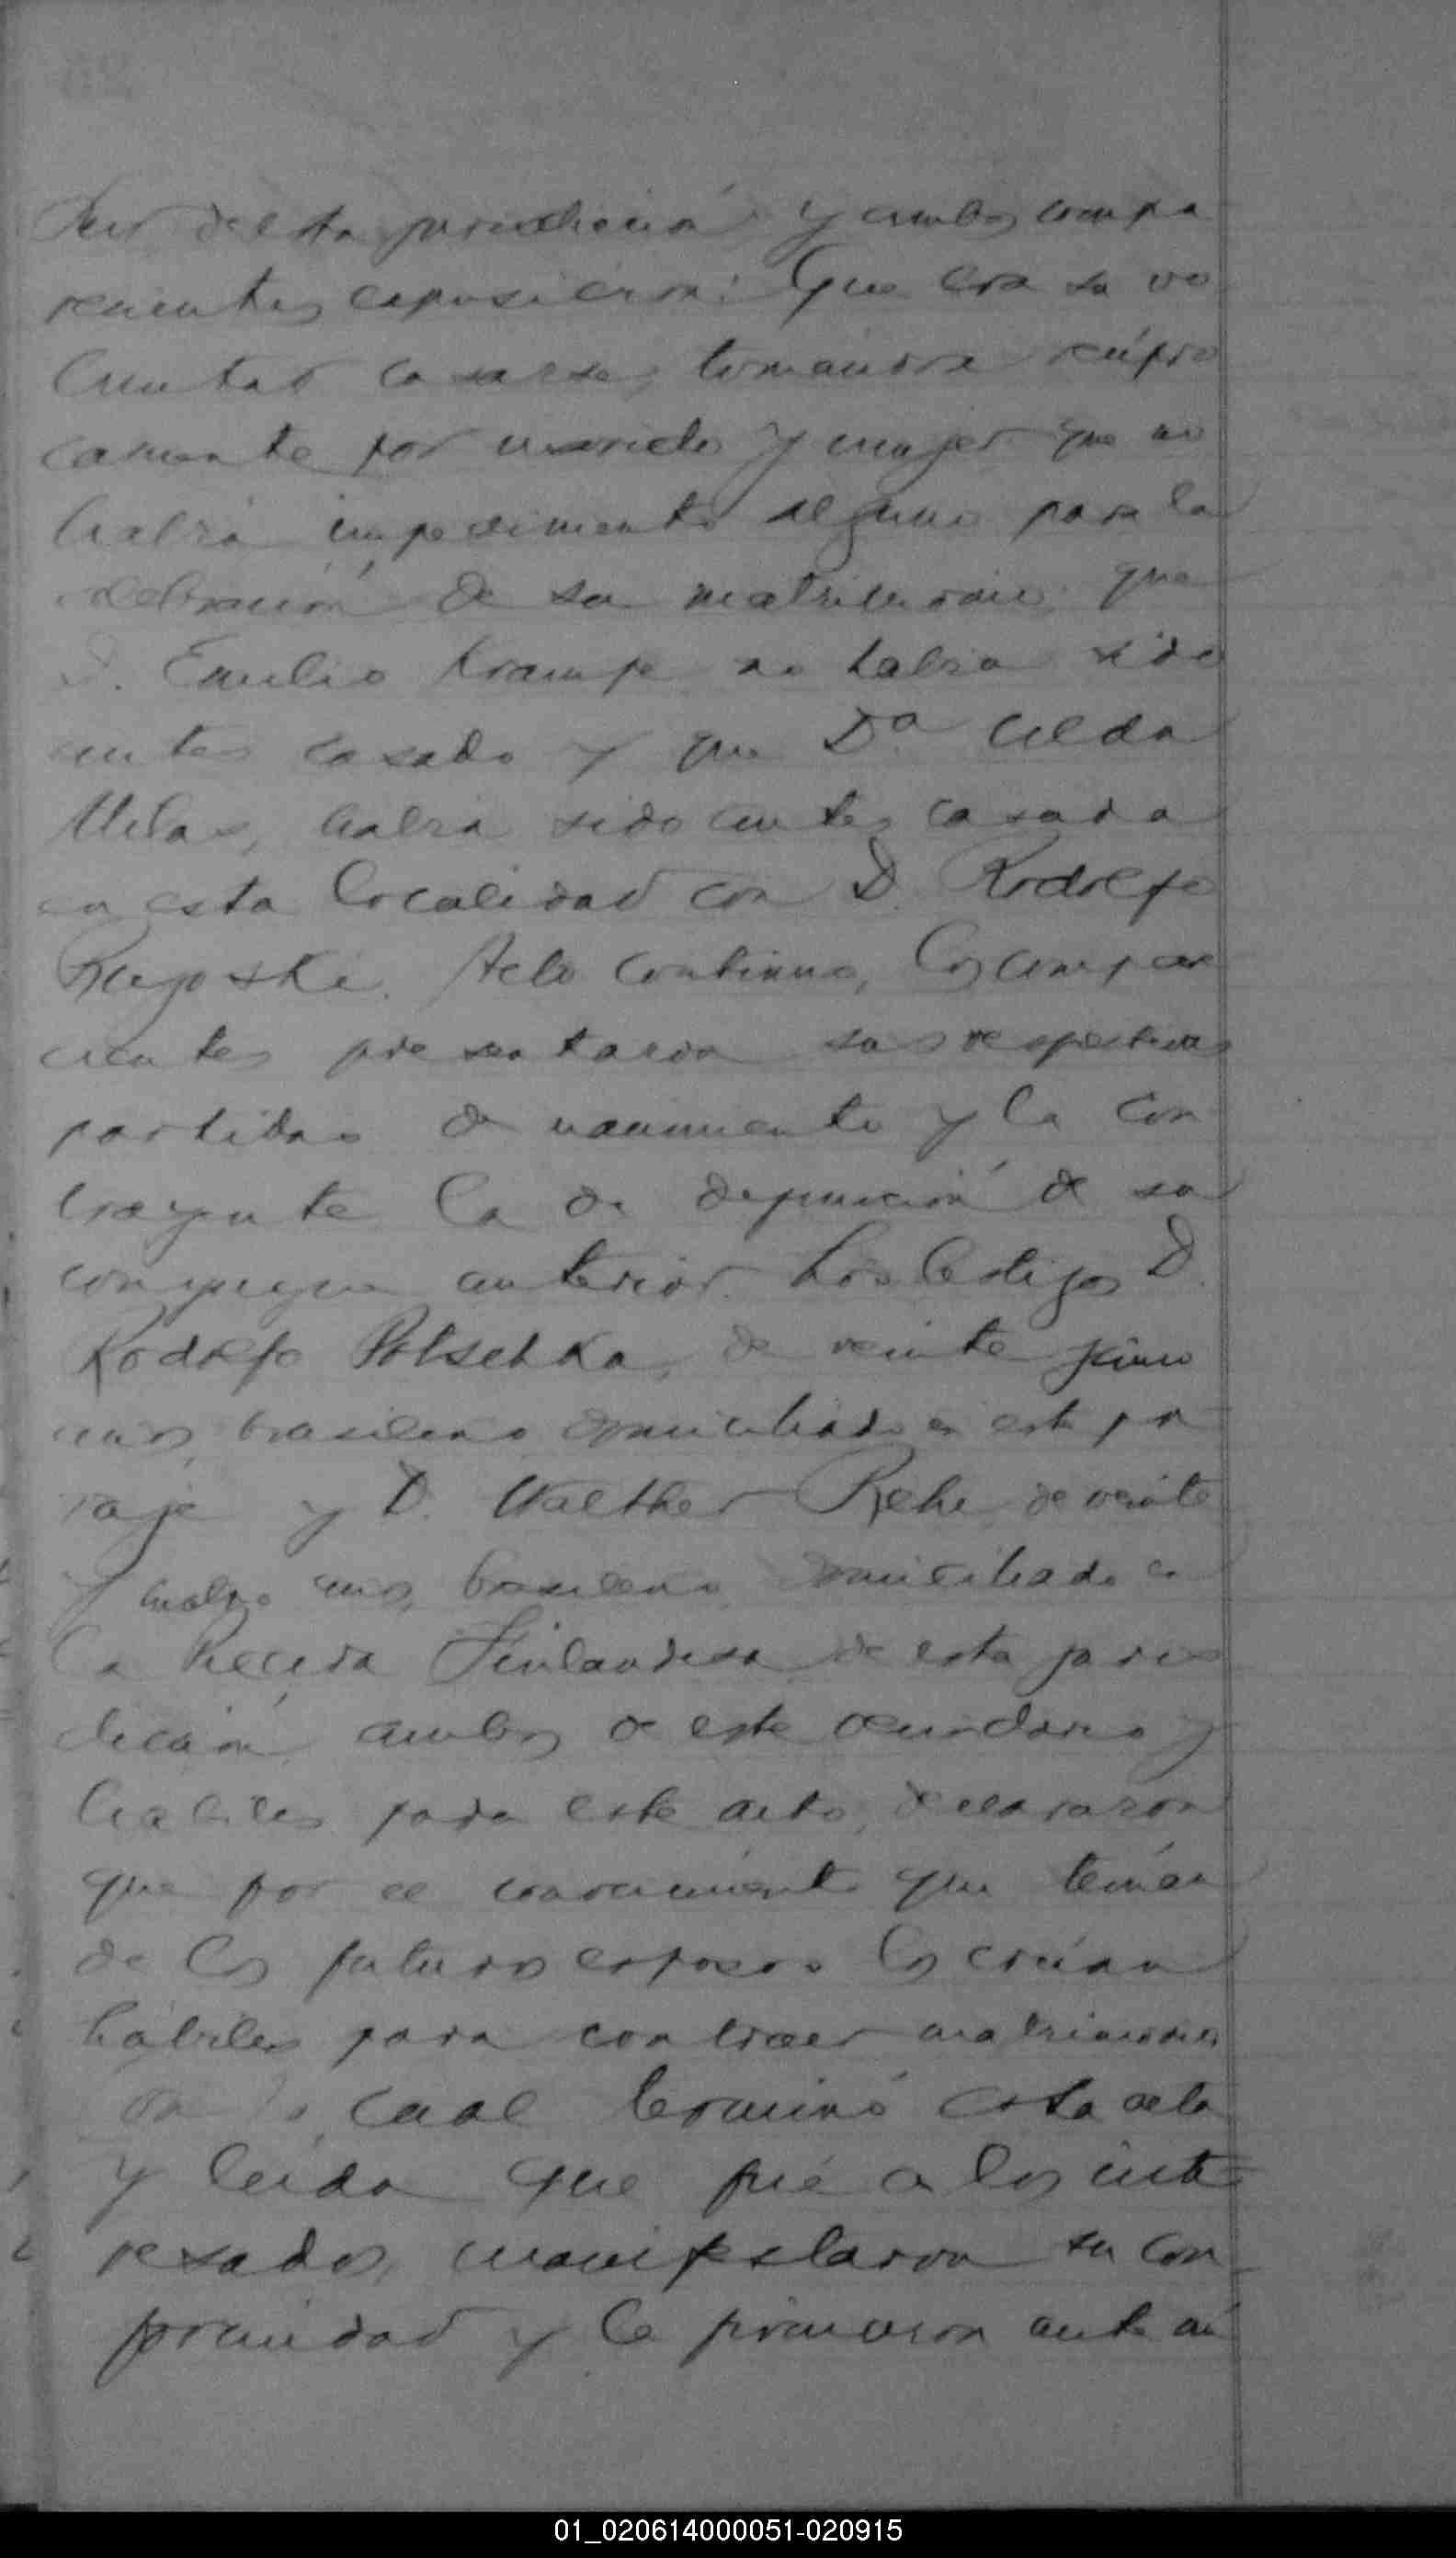 de esta jurisdicción y ambos compa
recientes expusieron: Que era su vo
luntad casarse, tomandose recipro
camente por marido y mujer que no
habia impedimento alguno para la
celebración de su matrimonio que
D. Emilio Krampe no habia sido
antes casado y que Dª Alda
Milas, habia sido antes casada
en esta localidad con D. Rodolfo
Acto continuo, los compare
cientes presentaron sus respectivas
partidas de nacimiento y la con
trayente la de defunción de su
conyugue anterior. Los testigos D.
Rodolfo Potschka, de veinte
años brasileno domiciliado en este pa
raje y D. Walther Rehe de veinte
y cuatro años, brasileno, domiciliado en
la Picada Finlandesa de esta juris
dicción ambos de este vecindario y
habiles para este acto, declararon
que por el conocimiento que tenían
de los futuros esposos los creían
hábiles para contraer matrimonio
con lo cual terminó esta acta
y leida que fué a los inte
resados, manifestaron su con
formidad y la firmaron ante mi
01_020614000051-020915